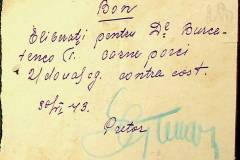 Bon
Eliberați pentru Dl Burca-
tenco T. carne porci
2/două/kg. contra cost.
30/VI 43.
Pretor